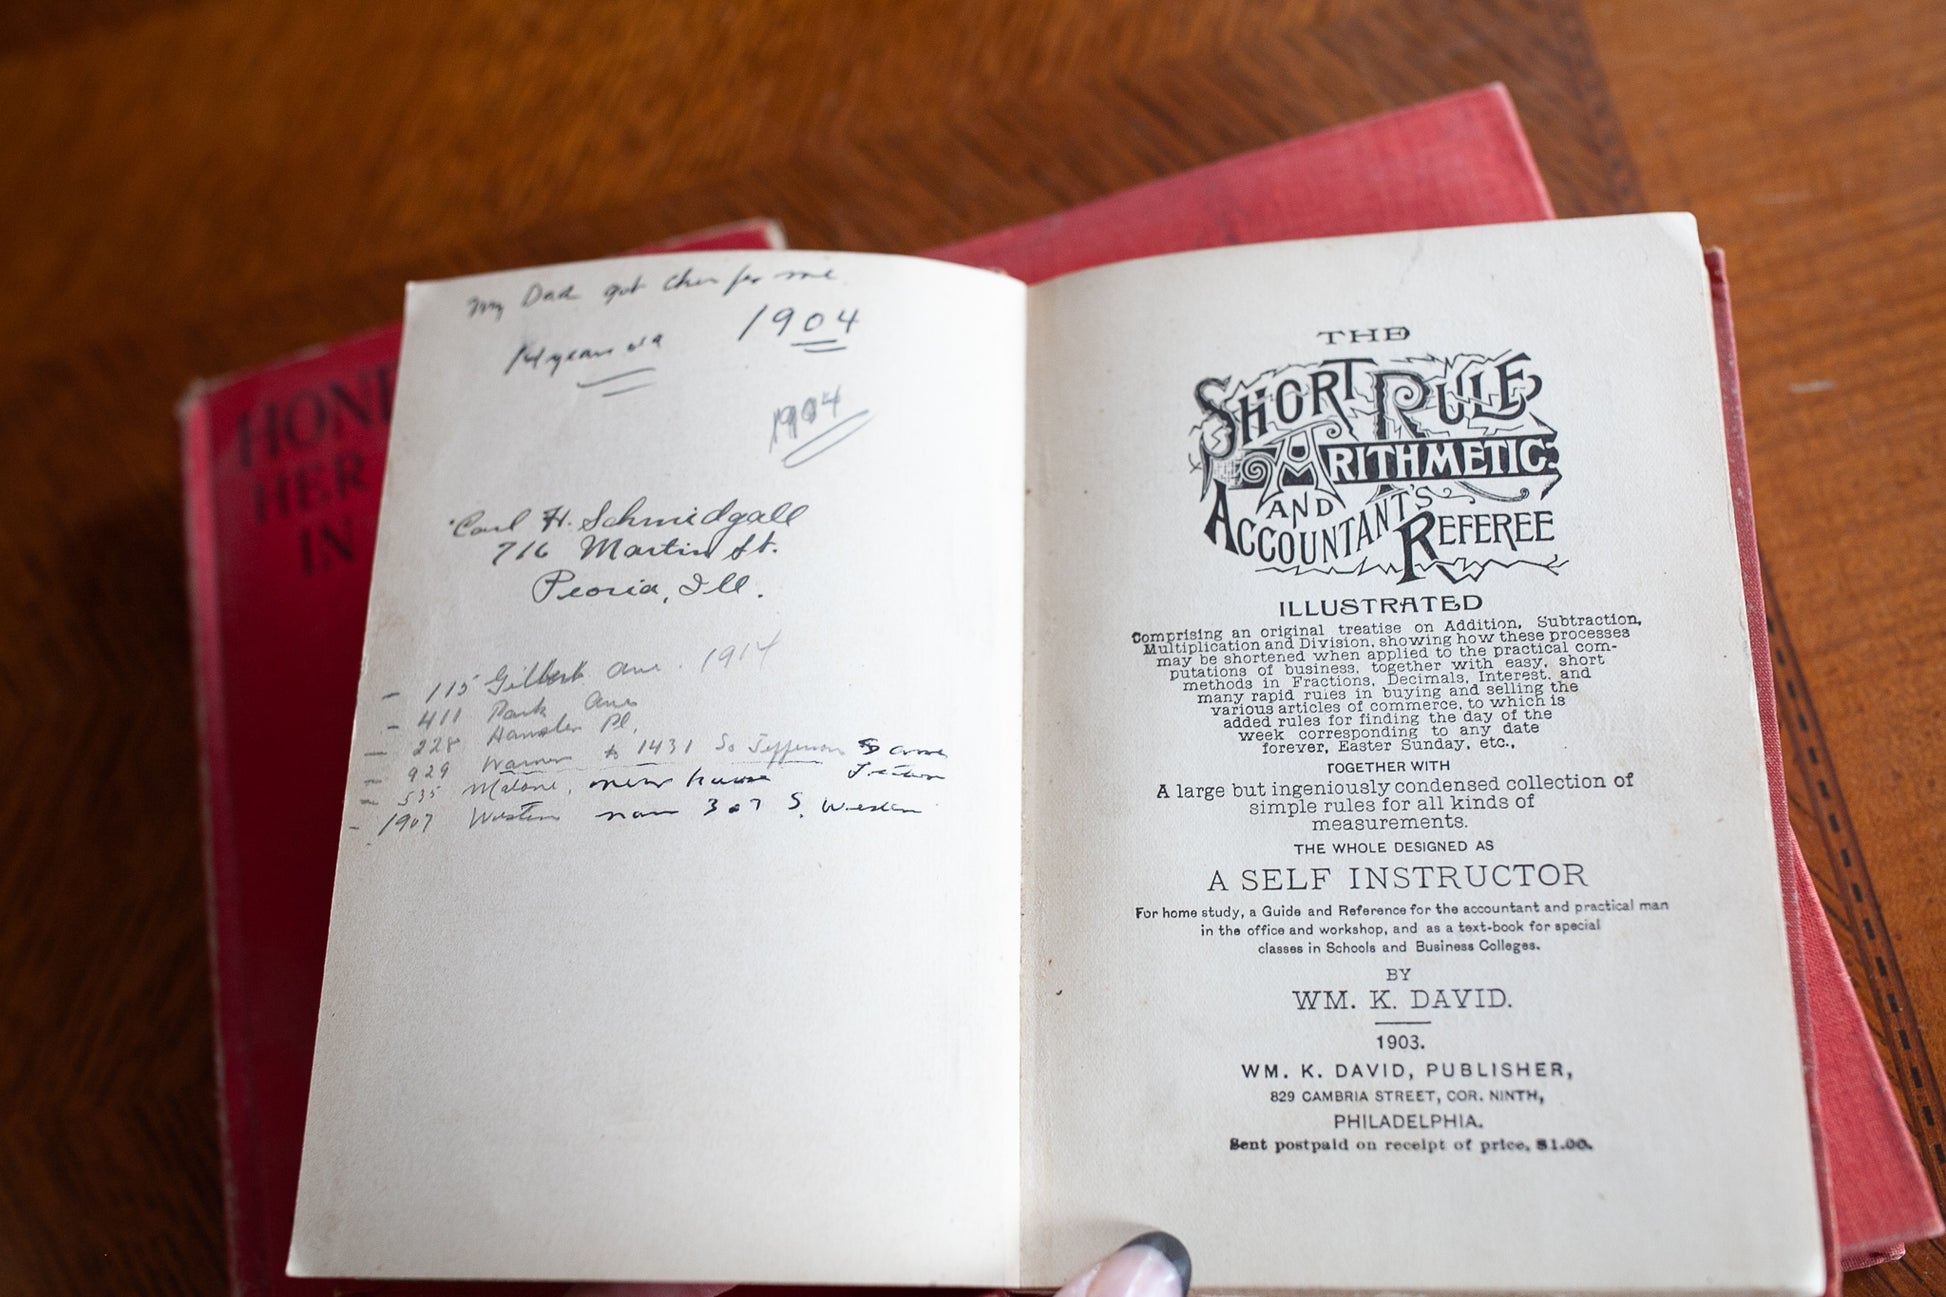 HON
HER
IN
My Dad got
for me
1904
14 years
1904
Carl H. Schmidgall
716 Martin St.
Peoria, Ill.
- 115 Gilbert Ave. 1914
- 411 Park Ave
- 228 Hansler Pl.
- 929 Warner to 1431 So Jefferson
- 535 Malone, new house
- 1907 Western now 307 S. Western
THE
SHORT RULE
ARITHMETIC
AND
ACCOUNTANT'S
REFEREE
ILLUSTRATED
Comprising an original treatise on Addition, Subtraction,
Multiplication and Division, showing how these processes
may be shortened when applied to the practical com-
putations of business, together with easy, short
methods in Fractions, Decimals, Interest, and
many rapid rules in buying and selling the
various articles of commerce, to which is
added rules for finding the day of the
week corresponding to any date
forever, Easter Sunday, etc.,
TOGETHER WITH
A large but ingeniously condensed collection of
simple rules for all kinds of
measurements.
THE WHOLE DESIGNED AS
A SELF INSTRUCTOR
For home study, a Guide and Reference for the accountant and practical man
in the office and workshop, and as a text-book for special
classes in Schools and Business Colleges.
BY
WM. K. DAVID.
1903.
WM. K. DAVID, PUBLISHER,
829 CAMBRIA STREET, COR. NINTH,
PHILADELPHIA.
Sent postpaid on receipt of price, $1.00.